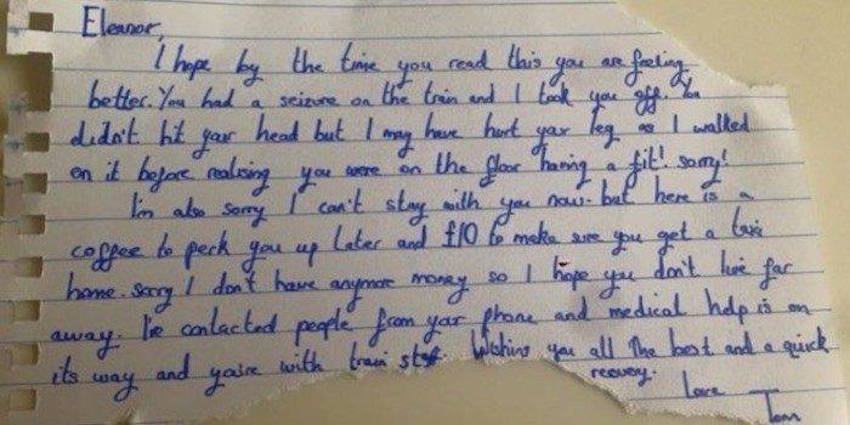 Eleanor,
I hope by the time you read this you are feeling
better. You had a seizure on the train and I took you off. You
didn't hit your head but I may have hurt your leg as I walked
on it before realising you were on the floor having a fit! sorry!
I'm also sorry I can't stay with you now. but here is a
coffee to perk you up later and £10 to make sure you get a taxi
home. Sorry I don't have anymore money so I hope you don't live far
away. I've contacted people from your phone and medical help is on
its way and you're with train staff. Wishing you all the best and a quick
recovery.
Love Tom